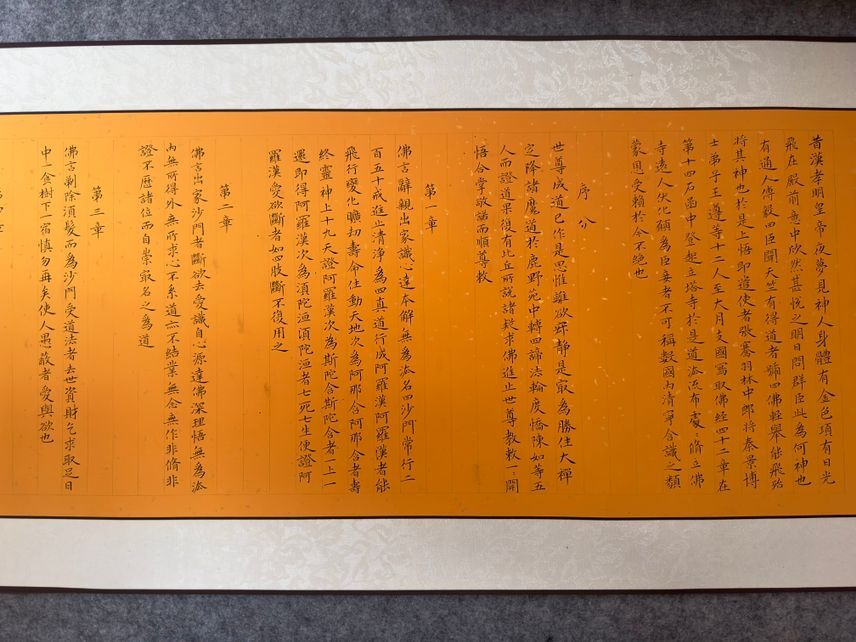 昔漢孝明皇帝夜夢見神人身體有金色項有日光
飛在殿前意中欣然甚悅之明日問群臣此為何神也
有通人傅毅曰臣聞天竺有得道者號曰佛輕舉能飛殆
將其神也於是上悟即遣使者張騫羽林中郎將秦景博
士弟子王遵等十二人至大月支國寫取佛經四十二章在
第十四石函中登起立塔寺於是道法流布處處脩立佛
寺遠人伏化願為臣妾者不可稱數國內清寧含識之類
蒙恩受賴於今不絕也
序分
世尊成道已作是思惟離欲寂靜是最為勝住大禪
定降諸魔道於鹿野苑中轉四諦法輪度憍陳如等五
人而證道果復有比丘所說諸疑求佛進止世尊教敕一一開
悟合掌敬諾而順尊敕
第一章
佛言辭親出家識心達本解無為法名曰沙門常行二
百五十戒進止清淨為四真道行成阿羅漢阿羅漢者能
飛行變化曠劫壽命住動天地次為阿那含阿那含者壽
終靈神上十九天證阿羅漢次為斯陀含斯陀含者一上一
還即得阿羅漢次為須陀洹須陀洹者七死七生便證阿
羅漢愛欲斷者如四肢斷不復用之
第二章
佛言出家沙門者斷欲去愛識自心源達佛深理悟無為法
內無所得外無所求心不系道亦不結業無念無作非脩非
證不歷諸位而自崇最名之為道
第三章
佛言剃除須髮而為沙門受道法者去世資財乞求取足日
中一食樹下一宿慎勿再矣使人愚蔽者愛與欲也